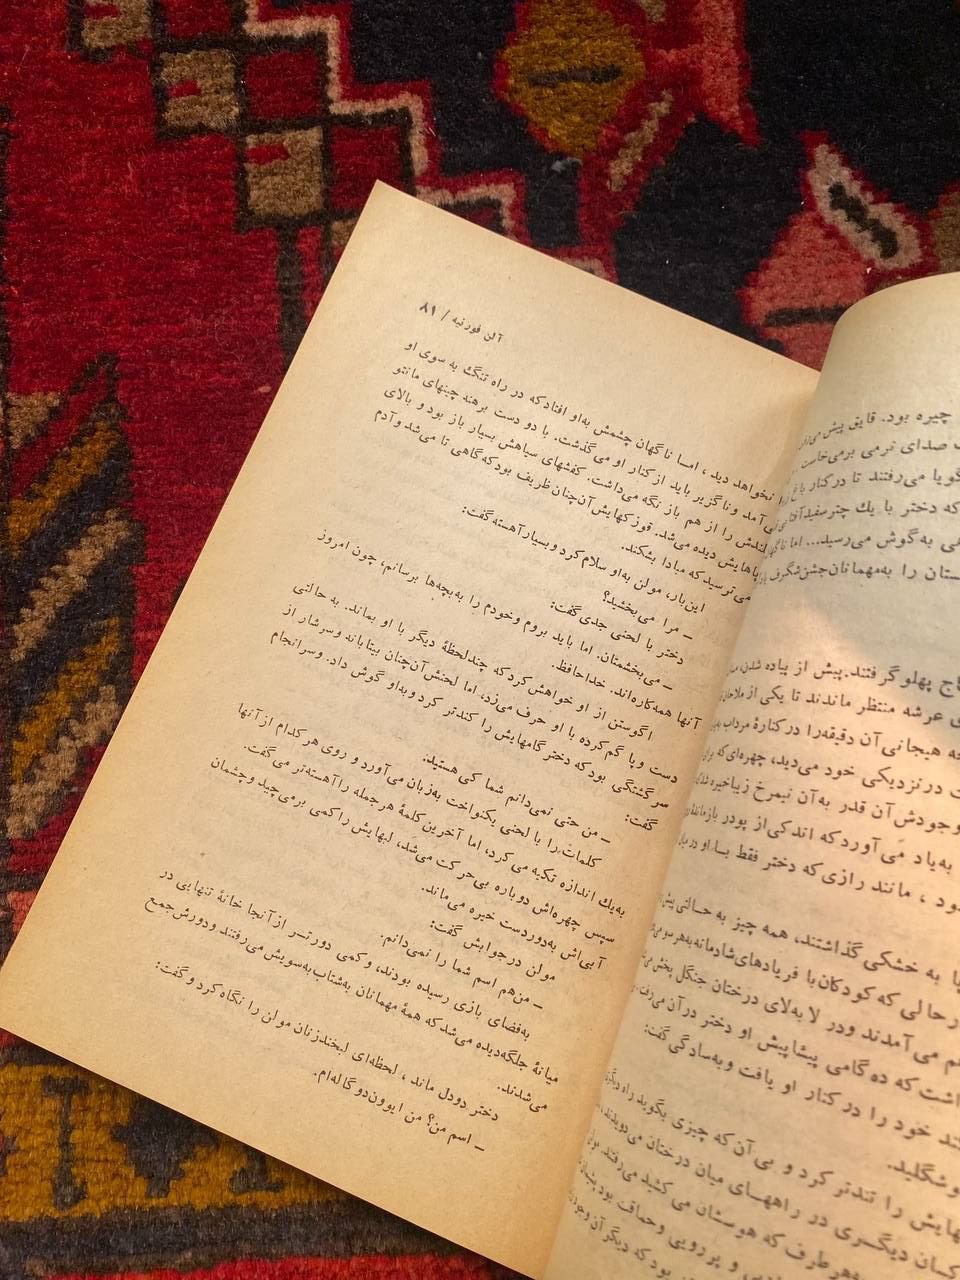 چیره بود. قایق پیش می‌راند
صدای نرمی برمی‌خاست
گویا می‌رفتند تا در کنار باغ
که دختر با یك چتر سفید آفتابی
به گوش می‌رسید... اما ناگهان
را به مهمانان جشن شگرف
پهلو گرفتند. پیش از پیاده شدن،
عرشه منتظر ماندند تا یکی از ملاحان
هیجانی آن دقیقه را در کنارهٔ مرداب
در نزدیکی خود می‌دید، چهره‌ای که برای
وجودش آن قدر به آن نیمرخ زیبا خیره
به یاد می‌آورد که اندکی از پودر
، مانند رازی که دختر فقط با او در
به خشکی گذاشتند، همه چیز به حالتی
در حالی که کودکان با فریادهای شادمانه به هر سو
می‌آمدند و در لا به‌لای درختان جنگل پخش
که ده گامی پیشاپیش او دختر در آن می‌رفت.
خود را در کنار او یافت و به‌سادگی گفت:
را تندتر کرد و بی آن که چیزی بگوید راه دیگری
دیگری در راههای میان درختان می‌دویدند،
هر طرف که هوسشان می کشید می‌رفتند.
و پررویی و حماقت بود
بود که دیگر آن
آلن فورنیه / ۸۱
نخواهد دید، اما ناگهان چشمش به‌او افتاد که در راه تنگ به سوی او
می آمد و ناگزیر باید از کنار او می گذشت. با دو دست برهنه چینهای مانتو
بلندش را از هم باز نگه می‌داشت. کفشهای سیاهش بسیار باز بود و بالای
پاهایش دیده می‌شد. قوزکهایش آن‌چنان ظریف بود که گاهی تا می‌شد و آدم
می ترسید که مبادا بشکند.
این‌بار، مولن به‌او سلام کرد و بسیار آهسته گفت:
ــ مرا می‌بخشید؟
دختر با لحنی جدی گفت:
ــ می‌بخشمتان. اما باید بروم و خودم را به‌بچه‌ها برسانم، چون امروز
آنها همه‌کاره‌اند. خداحافظ.
اگوستن از او خواهش کرد که چند لحظهٔ دیگر با او بماند. به حالتی
دست و پا گم کرده با او حرف می‌زد، اما لحنش آن‌چنان بیتابانه و سرشار از
سرگشتگی بود که دختر گامهایش را کندتر کرد و به‌او گوش داد. و سرانجام
گفت:
ــ من حتی نمی‌دانم شما کی هستید.
کلمات را با لحنی یکنواخت به‌زبان می‌آورد و روی هر کدام از آنها
به‌یك اندازه تکیه می‌کرد، اما آخرین کلمهٔ هر جمله را آهسته‌تر می‌گفت.
سپس چهره‌اش دوباره بی‌حرکت می‌شد، لبهایش را کمی برمی چید و چشمان
آبی‌اش به‌دوردست خیره می‌ماند.
مولن در جوابش گفت:
ــ من‌هم اسم شما را نمی‌دانم.
به‌فضای بازی رسیده بودند، و کمی دورتر از آنجا خانهٔ تنهایی در
میانهٔ جلگه دیده می‌شد که همهٔ مهمانان به‌شتاب به‌سویش می‌رفتند و دورش جمع
می‌شدند.
دختر دودل ماند، لحظه‌ای لبخندزنان مولن را نگاه کرد و گفت:
ــ اسم من؟ من ایوون‌دو گاله‌ام.